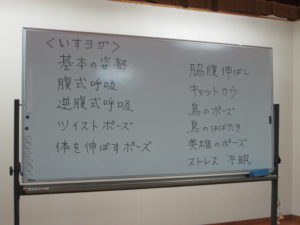 <いすヨガ>
基本の姿勢
腹式呼吸
逆腹式呼吸
ツイストポーズ
体を伸ばすポーズ
脇腹伸ばし
キャットカウ
鳥のポーズ
鳥のはばたき
英雄のポーズ
ストレス 不眠